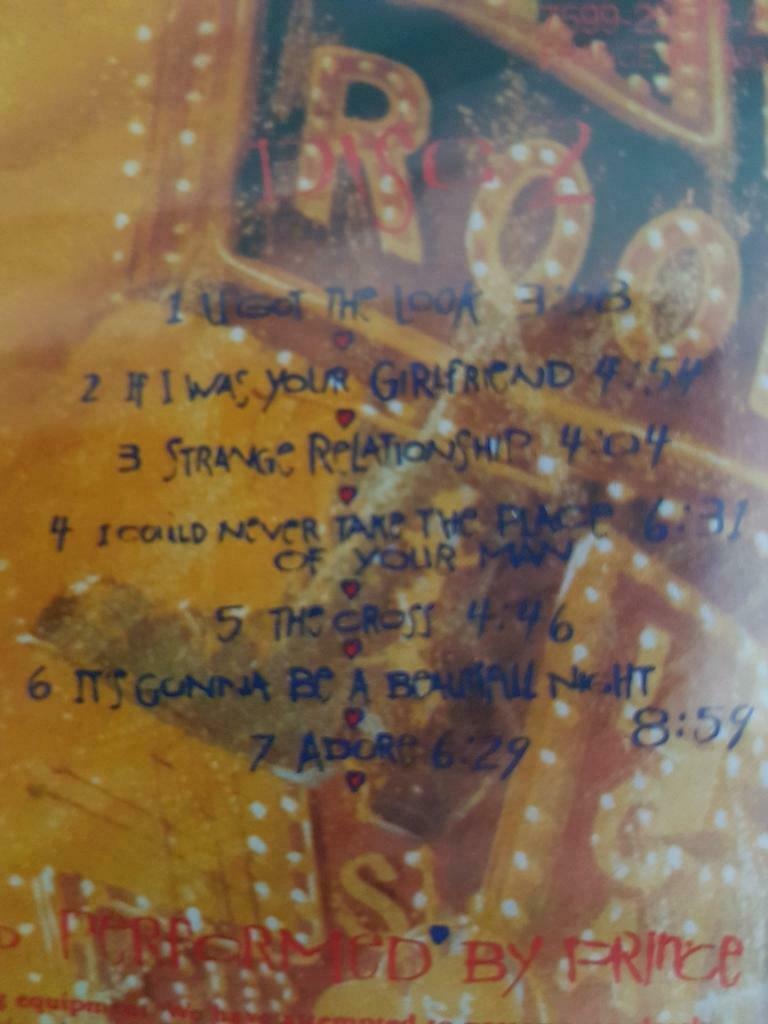 ROO
DISC 2
1 U GOT THE LOOK 3:58
2 IF I WAS YOUR GIRLFRIEND 4:54
3 STRANGE RELATIONSHIP 4:04
4 I COULD NEVER TAKE THE PLACE 6:31
OF YOUR MAN
5 THE CROSS 4:46
6 IT'S GONNA BE A BEAUTIFULL NIGHT
8:59
7 ADORE 6:29
PERFORMED BY PRINCE
equipment. We have attempted to